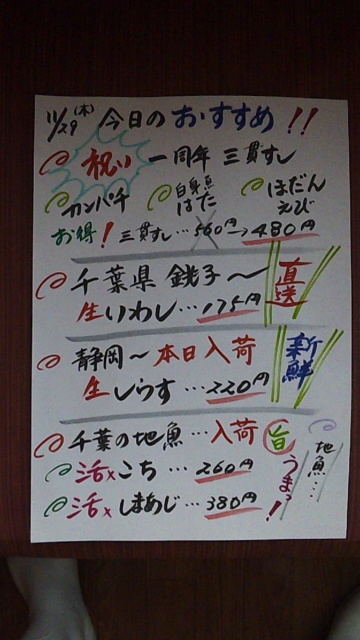 11/29(木) 今日の おすすめ!!
祝い 一周年 三貫すし
カンパチ 白身魚 はた ほだん えび
お得! 三貫すし… 560円→480円
千葉県 銚子〜 直送
生いわし…175円
静岡〜本日入荷 新鮮
生しらす…220円
千葉の地魚…入荷 旨 うまっ! 地魚…
活〆こち…260円
活〆しまあじ…380円